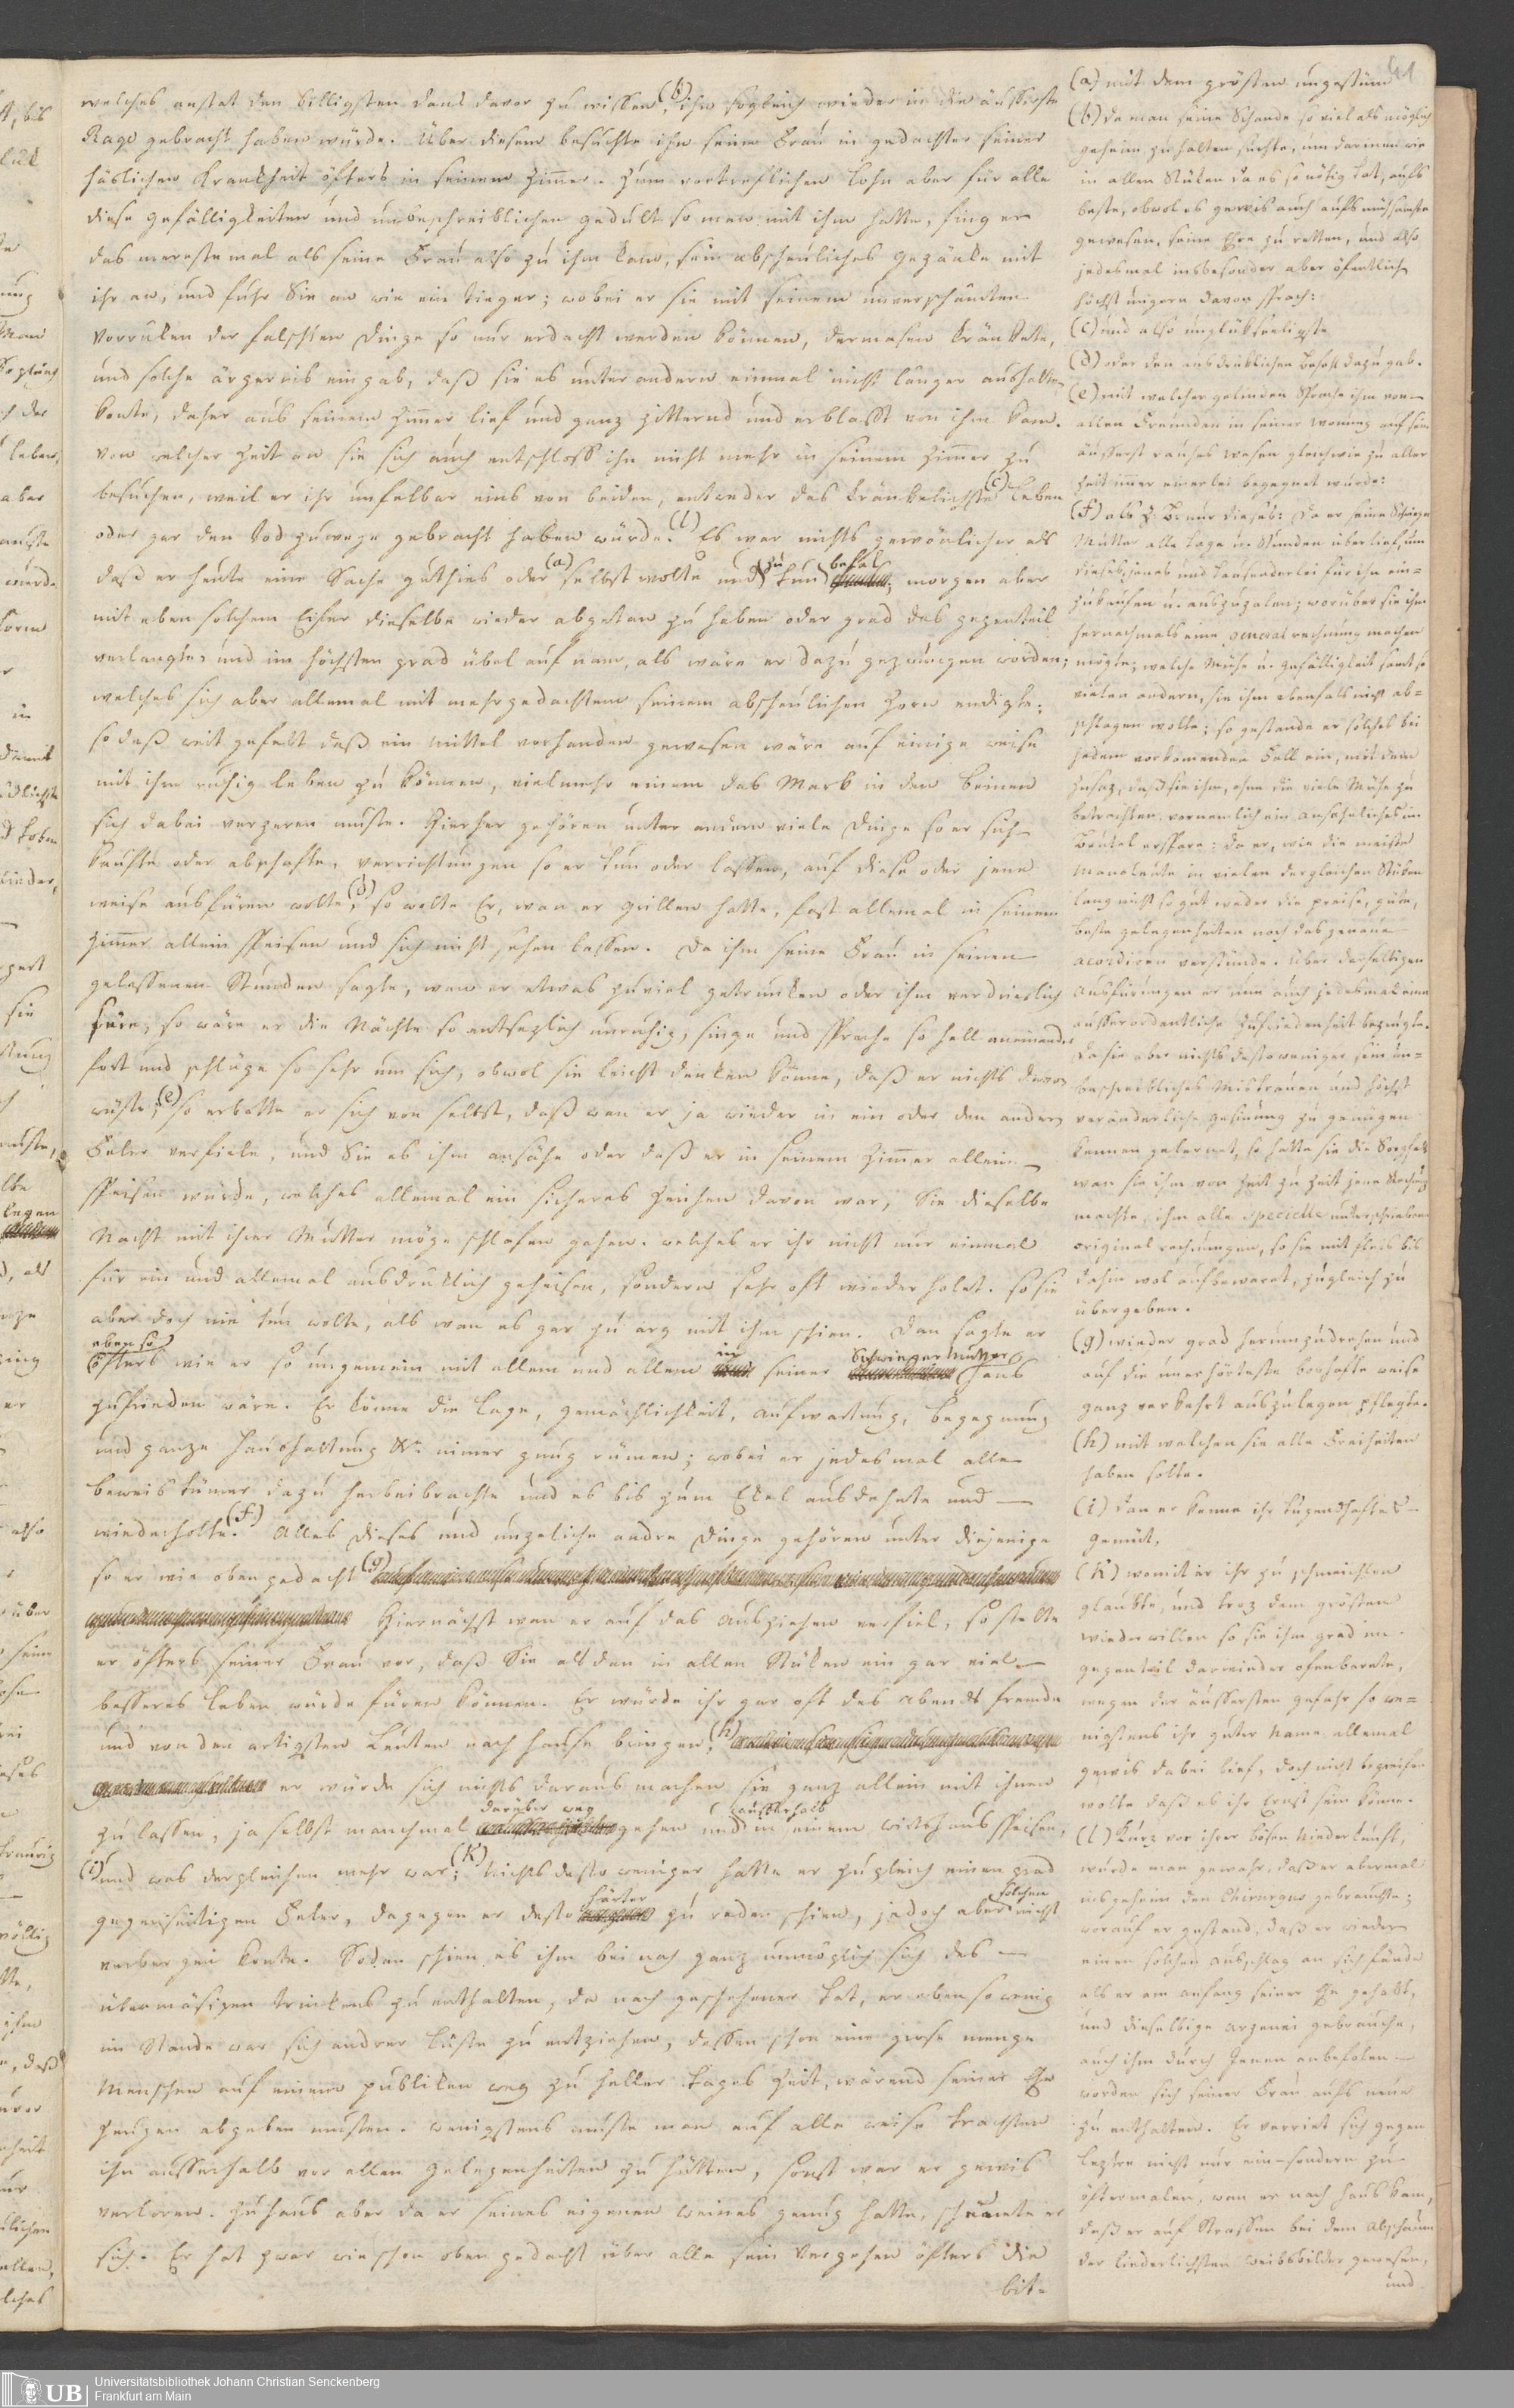 welches anstat den billigsten dank davor zu wissen, (b) ihn sogleich wieder in die äusserste
Rage gebracht haben würde. Über diesem besuchte ihn seine Frau in gedachter seiner
häslichen Krankheit öfters in seinem Zimer. Zum vortreflichen lohn aber für alle
diese gefälligkeiten und unbeschreiblichen gedult so man mit ihm hatte, fing er
das mereste mal als seine Frau also zu ihm kam, sein abscheuliches gezänke mit
ihr an, und fuhr Sie an wie ein tieger; wobei er sie mit seinem unverschämten
vorruken der falschten dinge so nur erdacht werden können, dermasen kränkete,
und solche ärgernis eingab, daß sie es unter andern einmal nicht länger aushalten
konte, daher aus seinem Zimer lief und ganz zitternd und erblasst von ihm kam.
von welcher Zeit an sie sich auch entschloss ihn nicht mehr in seinem Zimer zu
besuchen, weil er ihr unfelbar eins von beiden, entweder das kränkelichste (c) leben
oder gar den tod zuwege gebracht haben würde. (l) Es war nichts gewönlicher als
daß er heute eine Sache guthies oder (a) selbst wolte und zu tun befal, morgen aber
mit eben solchem Eifer dieselbe wieder abgetan zu haben oder grad das gegenteil
verlangte, und im höchsten grad übel auf nam, als wäre er dazu gezwungen worden;
welches sich aber allemal mit mehrgedachtem seinem abscheulichen Zorn endigte.
so daß weit gefelt daß ein mittel vorhanden gewesen wäre auf einige weise
mit ihm ruhig leben zu können, vielmehr einem das Mark in den beinen
sich dabei verzeren muste. Hierher gehören unter andern viele dinge so er sich
kaufte oder abschafte, verrichtungen so er tun oder lassen, auf diese oder jene
weise ausfüren wolte, (d) so wolte Er, wan er grillen hatte, fast allemal in seinem
Zimer allein speisen und sich nicht sehen lassen. Da ihm seine Frau in seinen
gelassenen Stunden sagte, wan er etwas zuviel getrunken oder ihm verdrieslich
wäre, so wäre er die Nächte so entsezlich unruhig, singe und spreche so hell aneinander
fort und schlüge so sehr um sich, obwol sie leicht denken könne, daß er nichts davon
wüste, (e) so erbatte er sich von selbst, daß wan er ja wieder in ein oder den andern
Feler verfiele, und Sie es ihm ansähe oder daß er in seinem Zimer allein
speisen würde, welches allemal ein sicheres Zeichen davon war, Sie dieselbe
Nacht mit ihrer Mutter möge schlafen gehen. welches er ihr nicht nur einmal
für ein und allemal ausdruklich geheisen, sondern sehr oft wiederholet. so sie
aber doch nie tun wolte, als wan es gar zu arg mit ihm schien. Dan sagte er
eben so
öfters wie er so ungemein mit allem und allem in seiner Schwieger Mutter Haus
zufrieden wäre. Er könne die lage, gemächlichkeit, aufwartung, begegnung
und ganze Haushaltung &c. nimer gnug rümen; wobei er jedesmal alle
beweistümer dazu herbeibrachte und es bis zum Ekel ausdehnte und
wiederholte. (f) Alles dieses und unzeliche andre dinge gehören unter diejenige
so er wie oben gedacht (g)
Hiernächst wan er auf das ausziehen verfiel, so stelte
er öfters seiner Frau vor, daß Sie alsdan in allen Stüken ein gar viel
besseres leben würde füren können. Er würde ihr gar oft des abends fremde
und von den artigsten leuten nach hause bringen, (h)
er würde sich nichts daraus machen sie ganz allein mit ihnen
zu lassen, ja selbst manchmal darüber weg gehen und ausserhalb in einem wirtshaus speisen,
(i) und was dergleichen mehr war; (k) Nichts desto weniger hatte er zugleich einen grad
gegenseitigen Feler, dagegen er desto härter zu reden schien, jedoch aber solchen nicht
verbergen konte. Sodan schien es ihm bei nah ganz unmöglich sich des
übermäsigen trinkens zu enthalten, da nach geschehener tat, er eben so wenig
im Stande war sich andrer lüste zu entziehen, dessen schon eine grose menge
Menschen auf einem publiken weg zu heller tages Zeit, wärend seiner Ehe
zeugen abgeben musten. wenigstens muste man auf alle weise trachten
ihn ausserhalb vor allen gelegenheiten zu hüten, sonst war er gewis
verloren. zuhaus aber da er seines eigenen weines genug hatte, schämte er
sich. Er hat zwar wie schon oben gedacht über alle sein vergehen öfters die
bit=
(a) mit dem grösten ungestüm
(b) da man seine Schande so viel als möglich
geheim zu halten suchte, um darinnen wie
in allen Stüken da es so nötig tat, aufs
beste, obwol es gewis auch aufs mühsamste
gewesen, seine Ehre zu retten, und also
jedesmal insbesonder aber öfentlich
höchst ungern davon sprach:
(c) und also unglükseeligste
(d) oder den ausdruklichen befehl dazu gab.
(e) mit welcher gelinden Sprache ihm von
allen Freunden in seiner wonung auf sein
äusserst rauhes wesen gleichwie zu aller
zeit imer einerlei begegnet wurde:
(f) als z. B. nur dieses: Da er seine Schwieger
Mutter alle tage u. Stunden überlief, um
dieses, jenes und tausenderlei für ihn ein=
zukaufen u. auszuzalen; worüber sie ihm
hernachmals eine general rechnung machen
mögte; welche Mühe u. gefälligkeit samt so
vielen andern, sie ihm ebenfals nicht ab=
schlagen wolte; so gestande er solches bei
jedem vorkomenden Fall ein, mit dem
zusaz, daß sie ihm, ohne die viele Mühe zu
betrachten, vornemlich ein ansehnliches im
Beutel erspare: da er, wie die meiste
Mansleute in vielen dergleichen Stüken
lang nicht so gut weder die preise, güte,
beste gelegenheiten noch das genaue
acordiren verstünde. Über derselbigen
ausfürungen er nun auch jedesmal eine
ausserordentliche zufriedenheit bezeugte.
da sie aber nichts destoweniger sein un=
beschreibliches Mistrauen und höchst
veränderliche gesinung zu genügen
kennen gelernet, so hatte sie die Sorgfalt
wan sie ihm von zeit zu zeit jene Rechnung
machte, ihm alle specielle unterschriebene
original rechnungen, so sie mit fleis bis
dahin wol aufbewaret, zugleich zu
übergeben.
(g) wieder grad herumzudrehen und
auf die unerhörteste boshafte weise
ganz verkehrt auszulegen pflegte.
(h) mit welchen sie alle Freiheiten
haben solte.
(i) dan er kenne ihr tugendhaftes
gemüt,
(k) womit er ihr zu schmeichlen
glaubte, und troz dem grösten
wiederwillen so sie ihm grad im
gegenteil darwieder ofenbarete,
wegen der äussersten gefahr so we=
nigstens ihr guter Name allemal
gewis dabei lief, doch nicht begreifen
wolte daß es ihr Ernst sein könne.
(l) Kurz vor ihrer bösen Niederkunft,
wurde man gewahr, daß er abermal
insgeheim den Chirurgus gebrauchte;
worauf er gestand, daß er wieder
einen solchen ausschlag an sich fände
als er am anfang seiner Ehe gehabt,
und dieselbige arzenei gebrauche,
auch ihm durch Jenen anbefolen
worden sich seiner Frau aufs neue
zu enthalten. Er verriet sich gegen
leztre nicht nur ein= sondern zu
öftermalen, wan er nach haus kam,
daß er auf Strassen bei dem abschaum
der liederlichsten weibsbilder gewesen,
und
Universitätsbibliothek Johann Christian Senckenberg
Frankfurt am Main